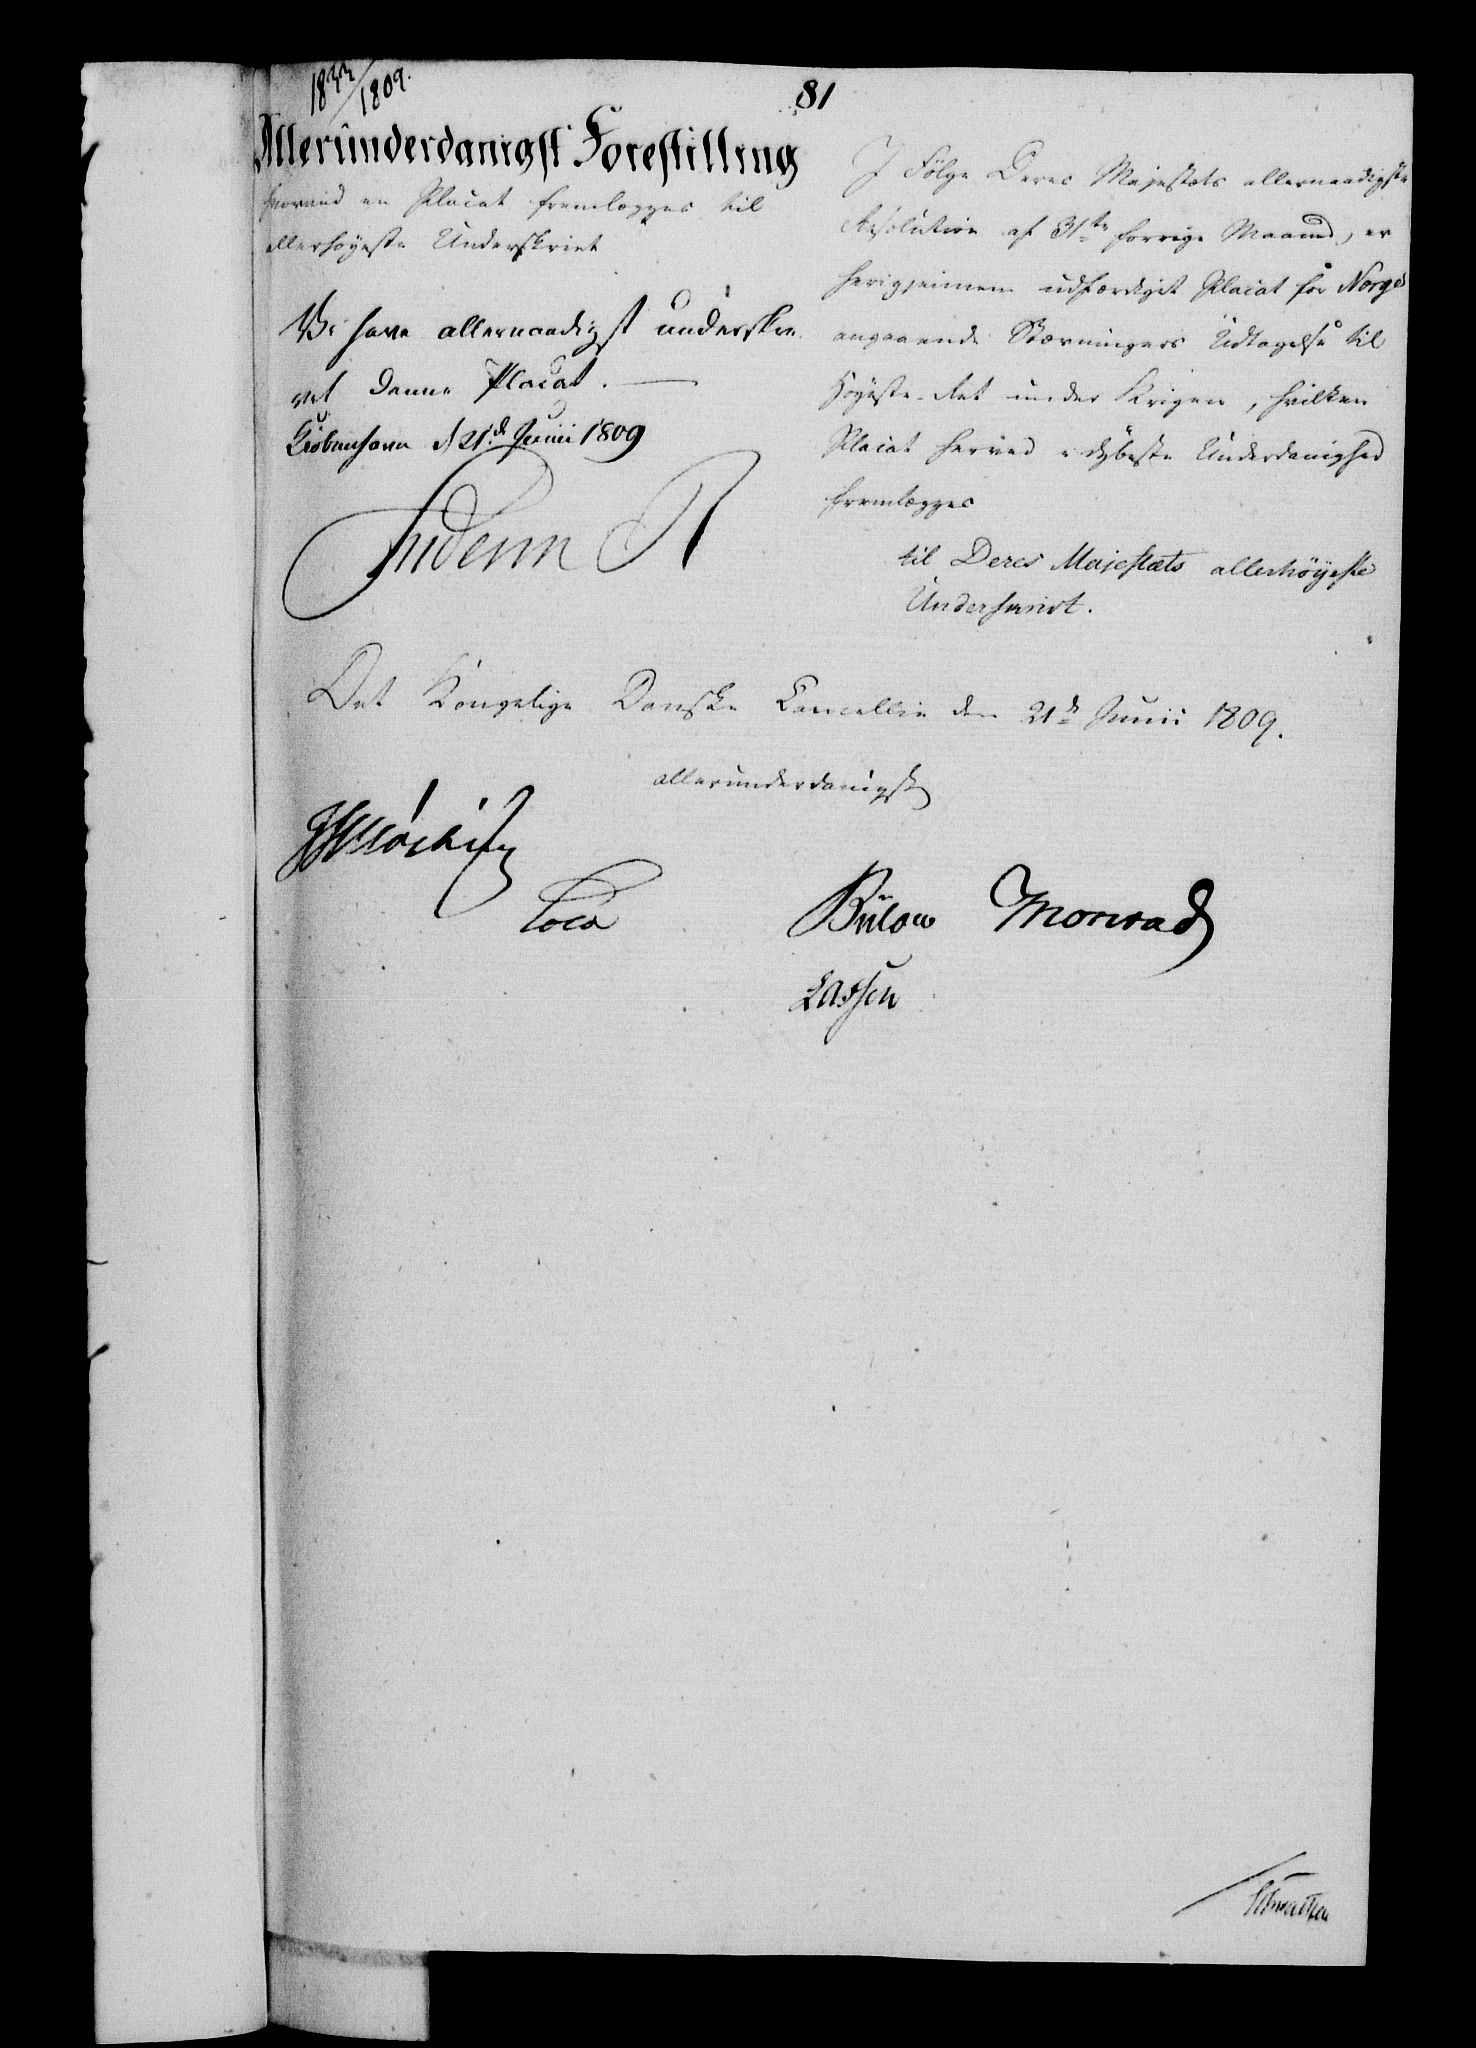 1833/1809.
81
Allerunderdanigst Forestilling
hvorved en Placat fremlægges til
allerhøyeste Underskrivt
Vi have allernaadigst underskre-
vet denne Placat. —
Kiøbenhavn d 21de Junii 1809
Frederik R
I Følge Deres Majestæts allernaadigste
Resolution af 31te forrige Maaned, er
herigjennem udfærdiget Placat for Norge
angaaende Stævningers Udtagelse til
Høyeste-Ret under Krigen, hvilken
Placat herved i dybeste Underdanighed
fremlægges
til Deres Majestæts allerhøyeste
Underskrivt.
Det Kongelige Danske Cancellie den 21de Junii 1809.
allerunderdanigst
Cold
Bülow Monrad
Lassen